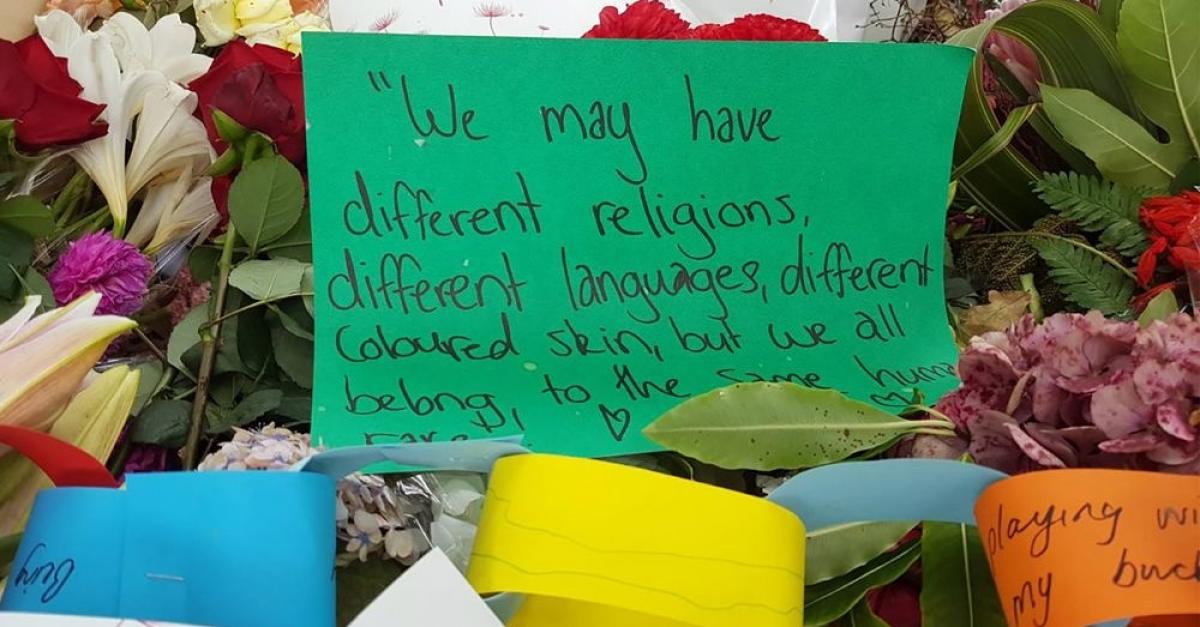 "We may have
different religions,
different languages, different
Coloured skin, but we all
belong, to the same human
race
playing
my